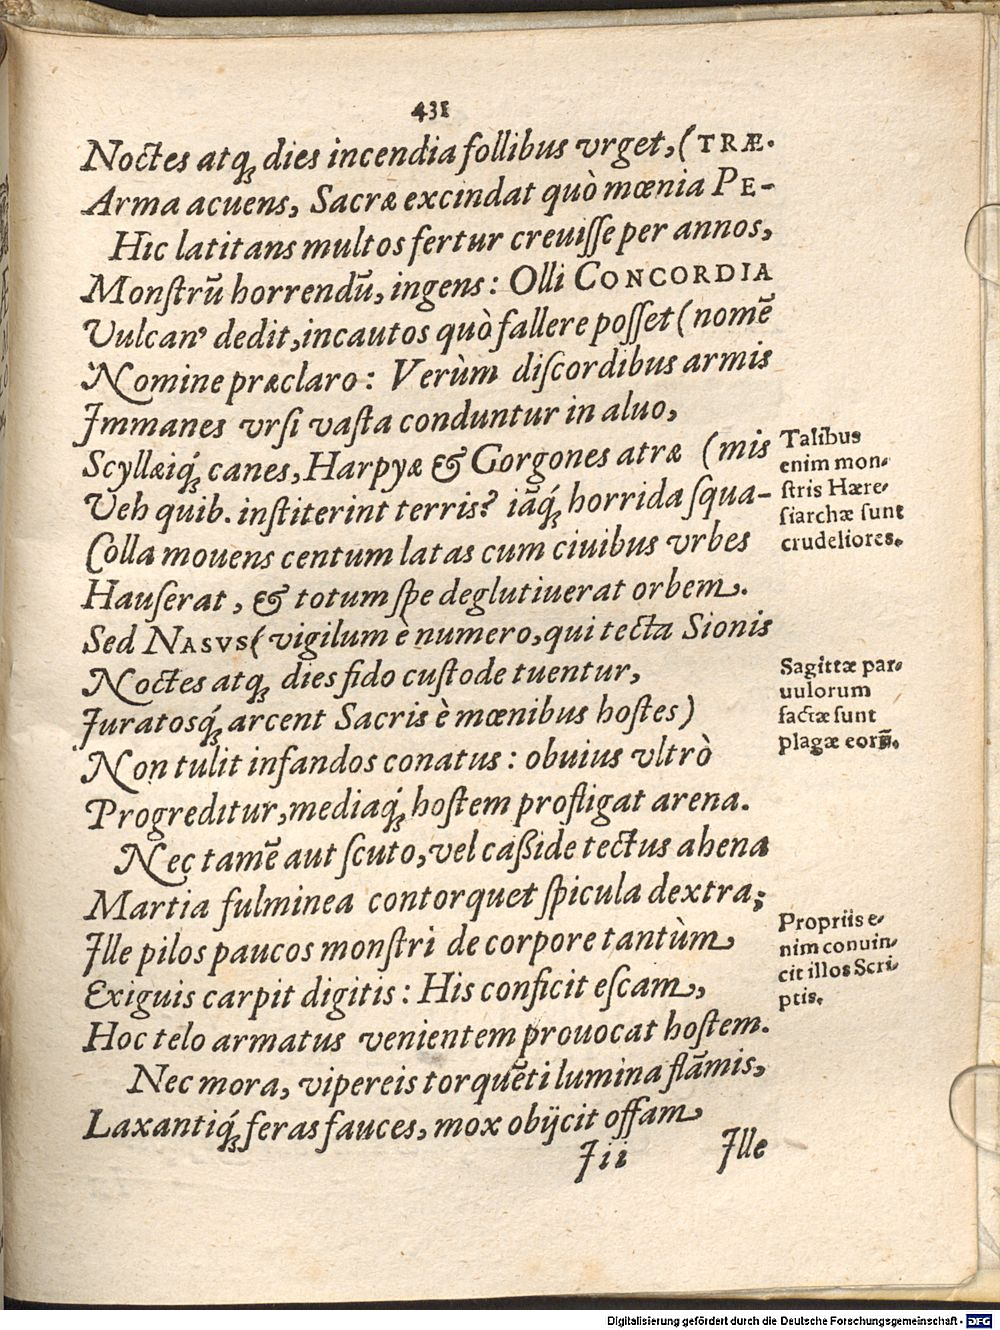 431
Noctes atq́; dies incendia follibus vrget, (TRÆ.
Arma acuens, Sacræ excindat quò mœnia PE-
Hic latitans multos fertur creuiſſe per annos,
Monſtrū horrendū, ingens: Olli CONCORDIA
Vulcan⁹ dedit, incautos quò fallere poſſet (nomē
Nomine præclaro: Verùm diſcordibus armis
Immanes vrſi vaſta conduntur in aluo,
Scyllæiq́; canes, Harpyæ & Gorgones atræ (mis
Veh quib. inſtiterint terris? iāq́; horrida ſqua-
Colla mouens centum latas cum ciuibus vrbes
Hauſerat, & totum ſpe deglutiuerat orbem.
Sed NASVS (vigilum è numero, qui tecta Sionis
Noctes atq; dies fido cuſtode tuentur,
Iuratosq́; arcent Sacris è mœnibus hoſtes)
Non tulit infandos conatus: obuius vltrò
Progreditur, mediaq́; hoſtem profligat arena.
Nec tamē aut ſcuto, vel caßide tectus ahena
Martia fulminea contorquet ſpicula dextra;
Ille pilos paucos monſtri de corpore tantùm
Exiguis carpit digitis: His conficit eſcam,
Hoc telo armatus venientem prouocat hoſtem.
Nec mora, vipereis torquēti lumina flāmis,
Laxantiq́; feras fauces, mox obijcit offam
Iii Ille
Talibus
enim mon-
ſtris Hære-
ſiarchæ ſunt
crudeliores.
Sagittæ par-
uulorum
factæ ſunt
plagæ eorū.
Propriis e-
nim conuin-
cit illos Scri-
ptis.
Digitalisierung gefördert durch die Deutsche Forschungsgemeinschaft - DFG